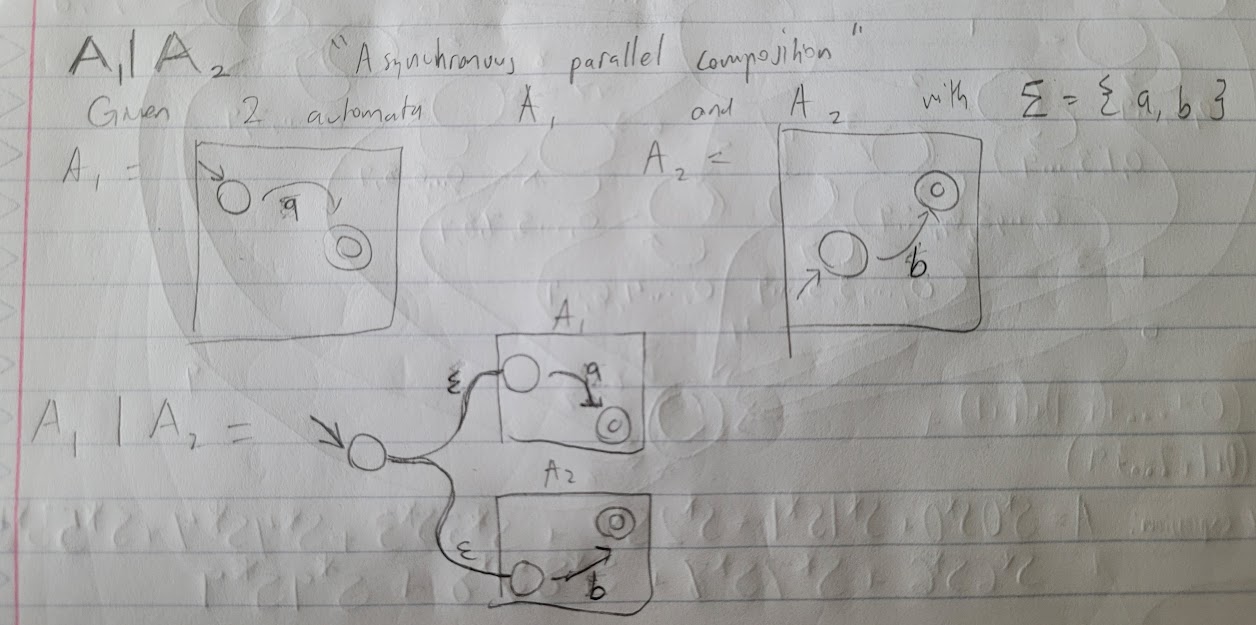 A₁|A₂ "Asynchronous parallel composition"
Given 2 automata A₁ and A₂ with Σ = {a, b}
A₁ = A₂ =
a
b
A₁
ε a
A₁ | A₂ =
A₂
ε b